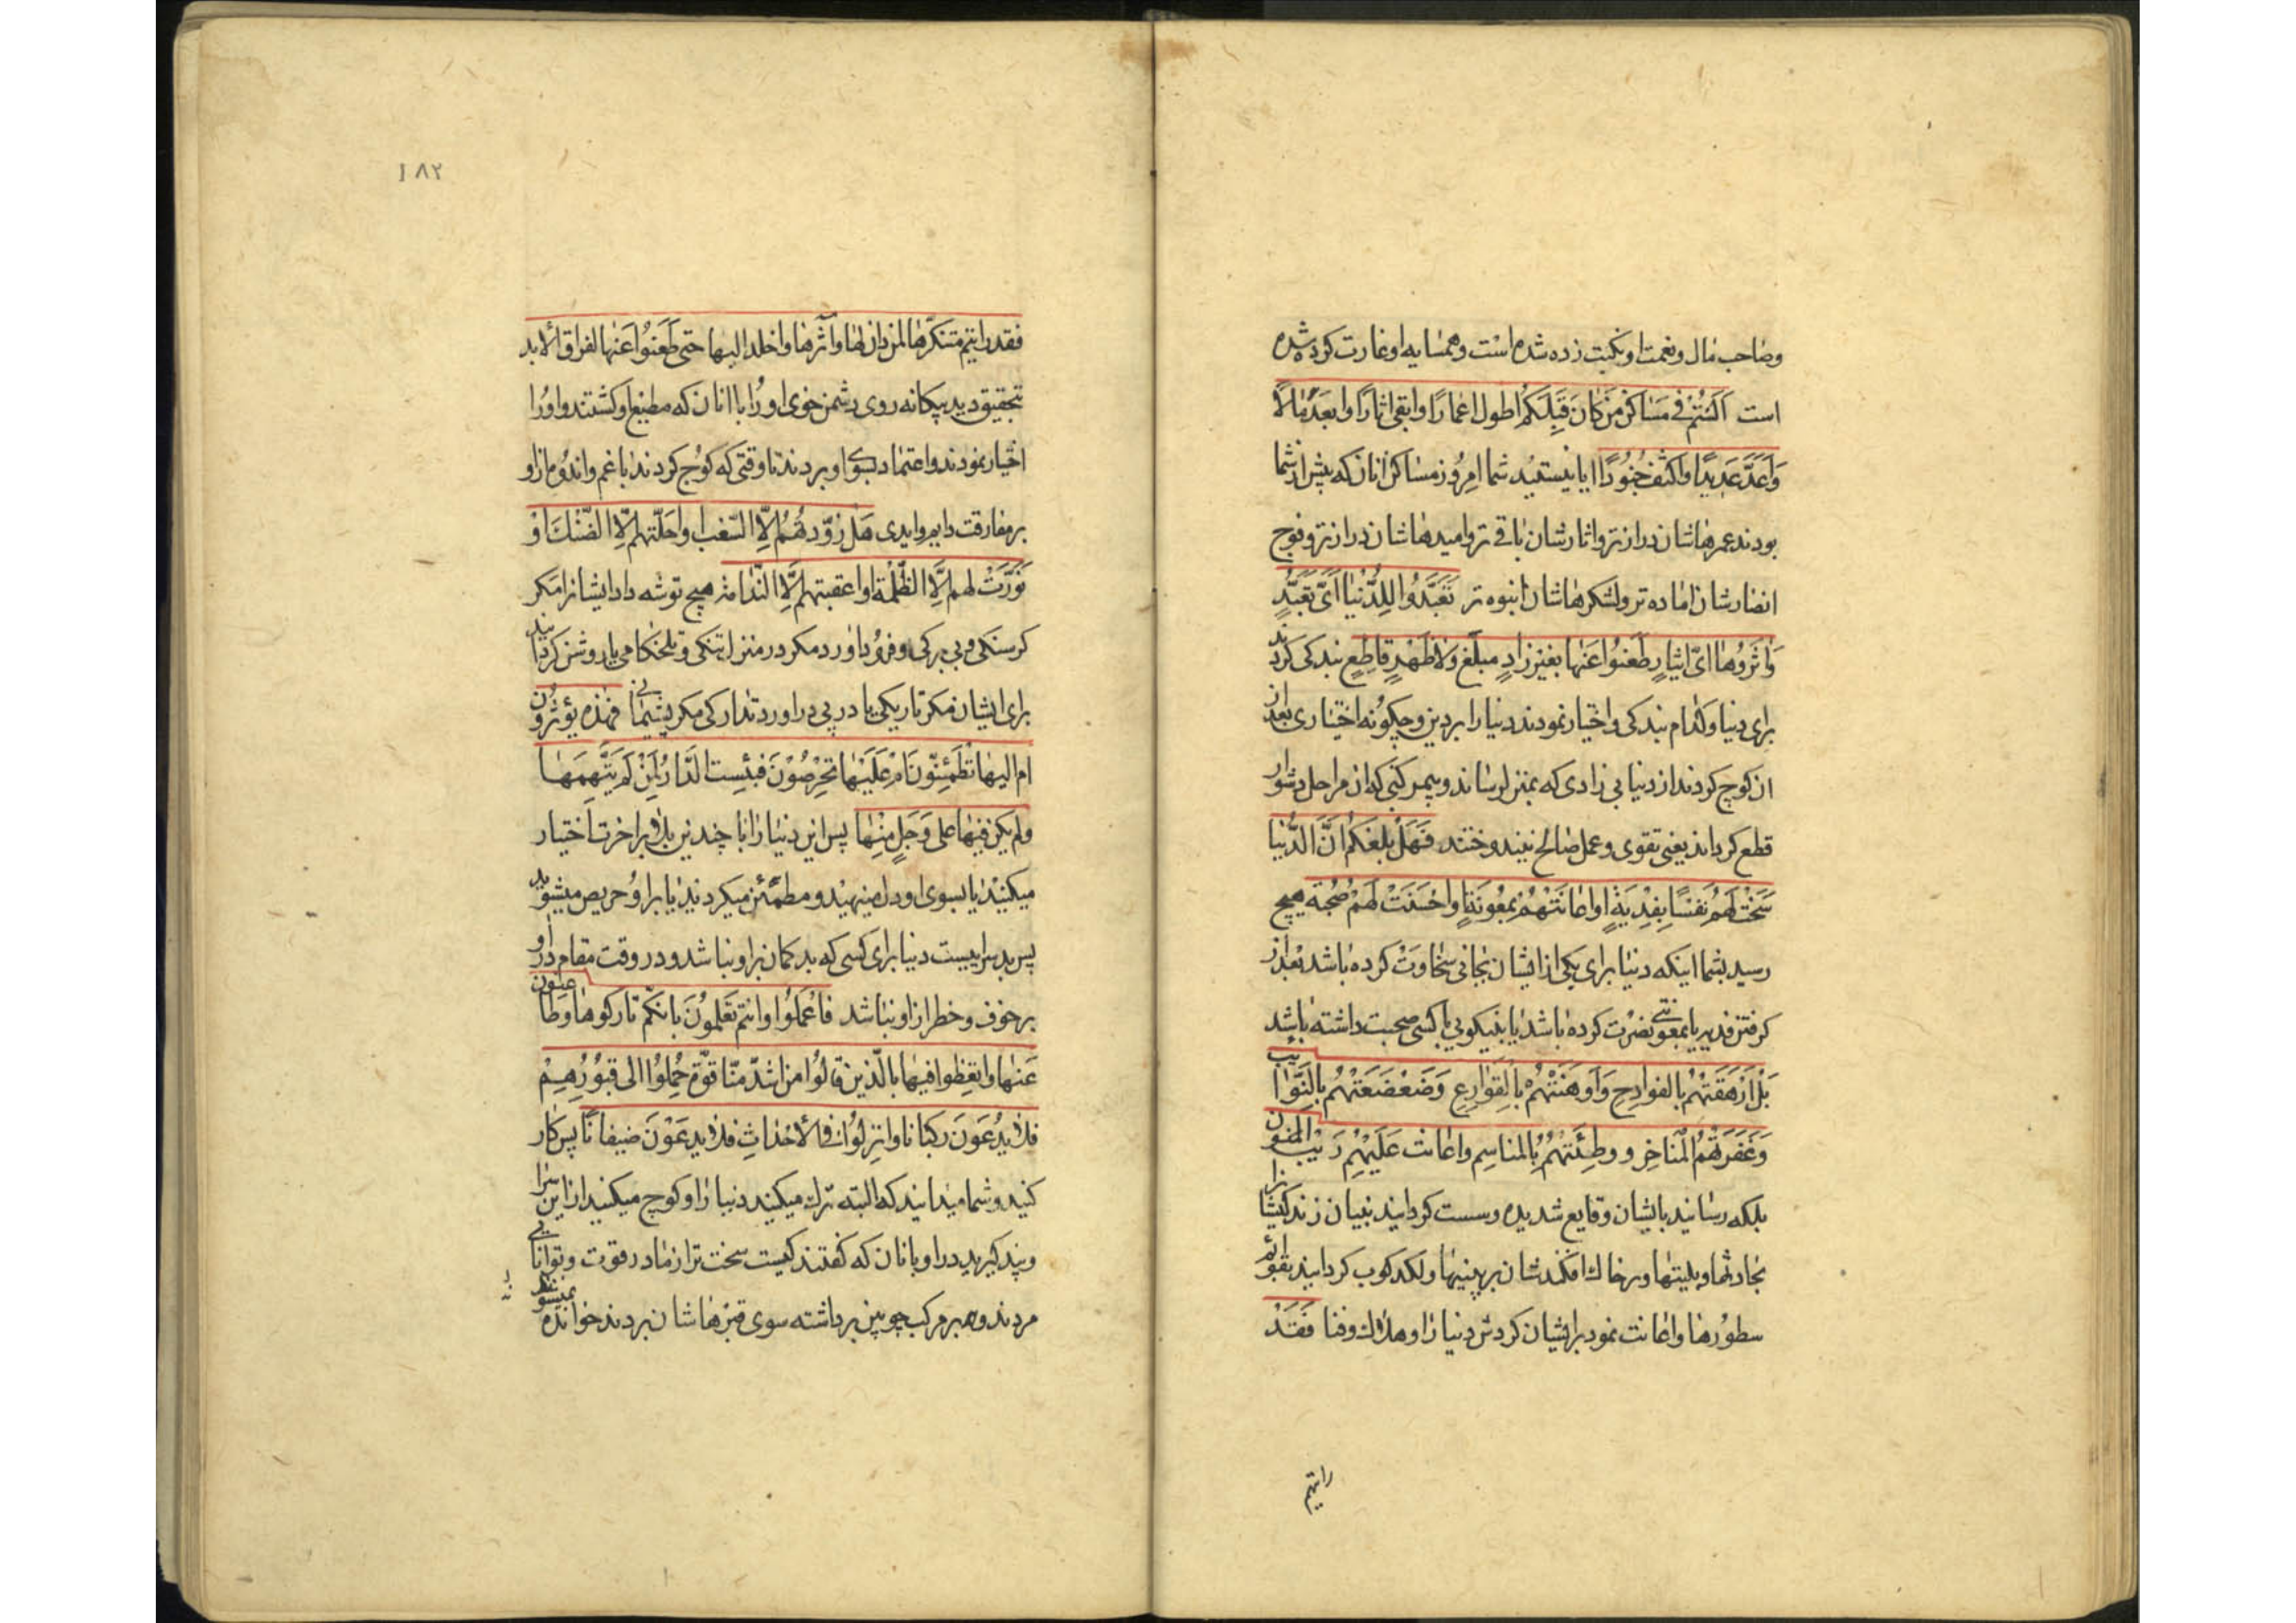 وصاحب مال ونعمت او نکبت زده شده است وهمسایه او غارت کرده شده
است اَلَسْتُمْ فی مَساکن مَن کانَ قَبلَکُم اطول اعمارًا وابقی اثارًا وابعَدَ امالاً
وَاَعَدَّ عَدیدًا واکثف جُنُودًا ایا نیستید شما امروز مساکن انان که پیش از شما
بودند عمرهاشان درازتر واثارشان باقی تر وامیدهاشان درازتر وفوج
انصارشان اماده تر ولشکرهاشان انبوه تر تَعَبَّدُوا لِلدُّنیا اَیَّ تَعَبُّدٍ
وَاثَرُوها ایَّ ایثارٍ ثم ظَعَنُوا عَنها بغیر زادٍ مبلّغ ولا ظَهْرٍ قاطِعٍ بندکی کردند
برای دنیا وکدام بندکی واختیار نمودند دنیا را بر دین وچکونه اختیاری بعد از
ان کوچ کردند از دنیا بی زادی که بمنزل رساند وبیمرکبی که ان مراحل دشوار
قطع کرداند یعنی تقوی وعمل صالح نیندوختند فَهَلْ بَلَغَکُم اَنَّ الدُّنیا
سَخَتْ لَهُم نَفسًا بِفِدیَةٍ اواعانَتْهُم بِمَعُونَةٍ اواَحْسَنَتْ لَهُمْ صُحْبَة هیچ
رسید بشما اینکه دنیا برای یکی از ایشان بجانی سخاوت کرده باشد بعد از
کرفتن فدیه یا بمعونتی نصرت کرده باشد یا بنیکویی با کسی صحبت داشته باشد
بَلْ اَرْهَقَتْهُم بالفوادِحِ وَاَوهَنَتْهُمْ بالقَوارِعِ وَضَعْضَعَتْهُم بالنَّوائب
وَعَفَّرَتْهُم للمَناخِرِ ووطِئَتْهُم بالمناسِم واعانت عَلَیْهِم رَیْبَ المنون
بلکه رسانید بایشان وقایع شدیده وسست کردانید بنیان زندکیشانرا
بحادثها وبلیتها وبرخاک افکندشان بر بینیها ولکدکوب کردانید بقوائم
سطورها واعانت نمود بر ایشان کردش دنیا را وهلاک وفنا فَقَدْ
رایتم
۱۸۲
فقد رایتم تنکّرها لمن دان لها واثرها واخلد الیها حتی ظَعَنُوا عَنها لفراق الابد
بتحقیق دیدید بیکانه روی دشمن خوی او را با انان که مطیع او کشتند واورا
اختیار نمودند واعتماد بسوی او بردند تا وقتی که کوچ کردند با غم واندوه از او
بر مفارقت دایم وابدی هَل زوّدتهُم اِلّا السّغب او احَلّتهم اِلّا الضَّنْکَ اوْ
نَوَّرَتْ لهم اِلَّا الظُّلْمَة او اعقبتهم اِلَّا النَّدامَة هیچ توشه داد ایشانرا مکر
کرسنکی وبی برکی وفرود اورد مکر در منزل تنکی وتلخکامی یا روشن کردانید
برای ایشان مکر تاریکی یا در پی دراورد تدارکی مکر پشیمانی فهذه تؤثرون
ام الیها تَطْمَئِنّونَ اَمْ عَلَیْها تَحْرِصُوْنَ فَبِئست الدّار لِمَنْ لَم یَتَّهِمَها
ولم یکن فیها علی وَجَلٍ مِنْها پس این دنیا را با چندین بلا بر اخرت اختیار
میکنید یا بسوی او دل مینهید ومطمئن میکردنید یا بر او حریص میشوید
پس بد سراییست دنیا برای کسی که بد کمان بر او نباشد ودر وقت مقام در او
برخوف وخطر از او نباشد فاعْمَلُوا وانتم تَعْلَمونَ بانکم تارکوها وظاعنون
عَنها واتعِظوا فیها بالّذین قالُوا من اشدّ منّا قوّةً حُمِلوُا الی قبُوُرِهِمْ
فلا یُدْعَوْنَ رکبانا واُنزِلُوا فی الاحداثِ فلا یدعَوْنَ ضیفانًا پس کار
کنید وشما میدانید که البته ترک میکنید دنیا را وکوچ میکنید از این سرا
وپند کیرید در او بانان که کفتند کیست سخت تر از ما در قوت وتوانایی
مردند وهم بر مرکب چوبین برداشته سوی قبرهاشان بردند خوانده نمیشوند